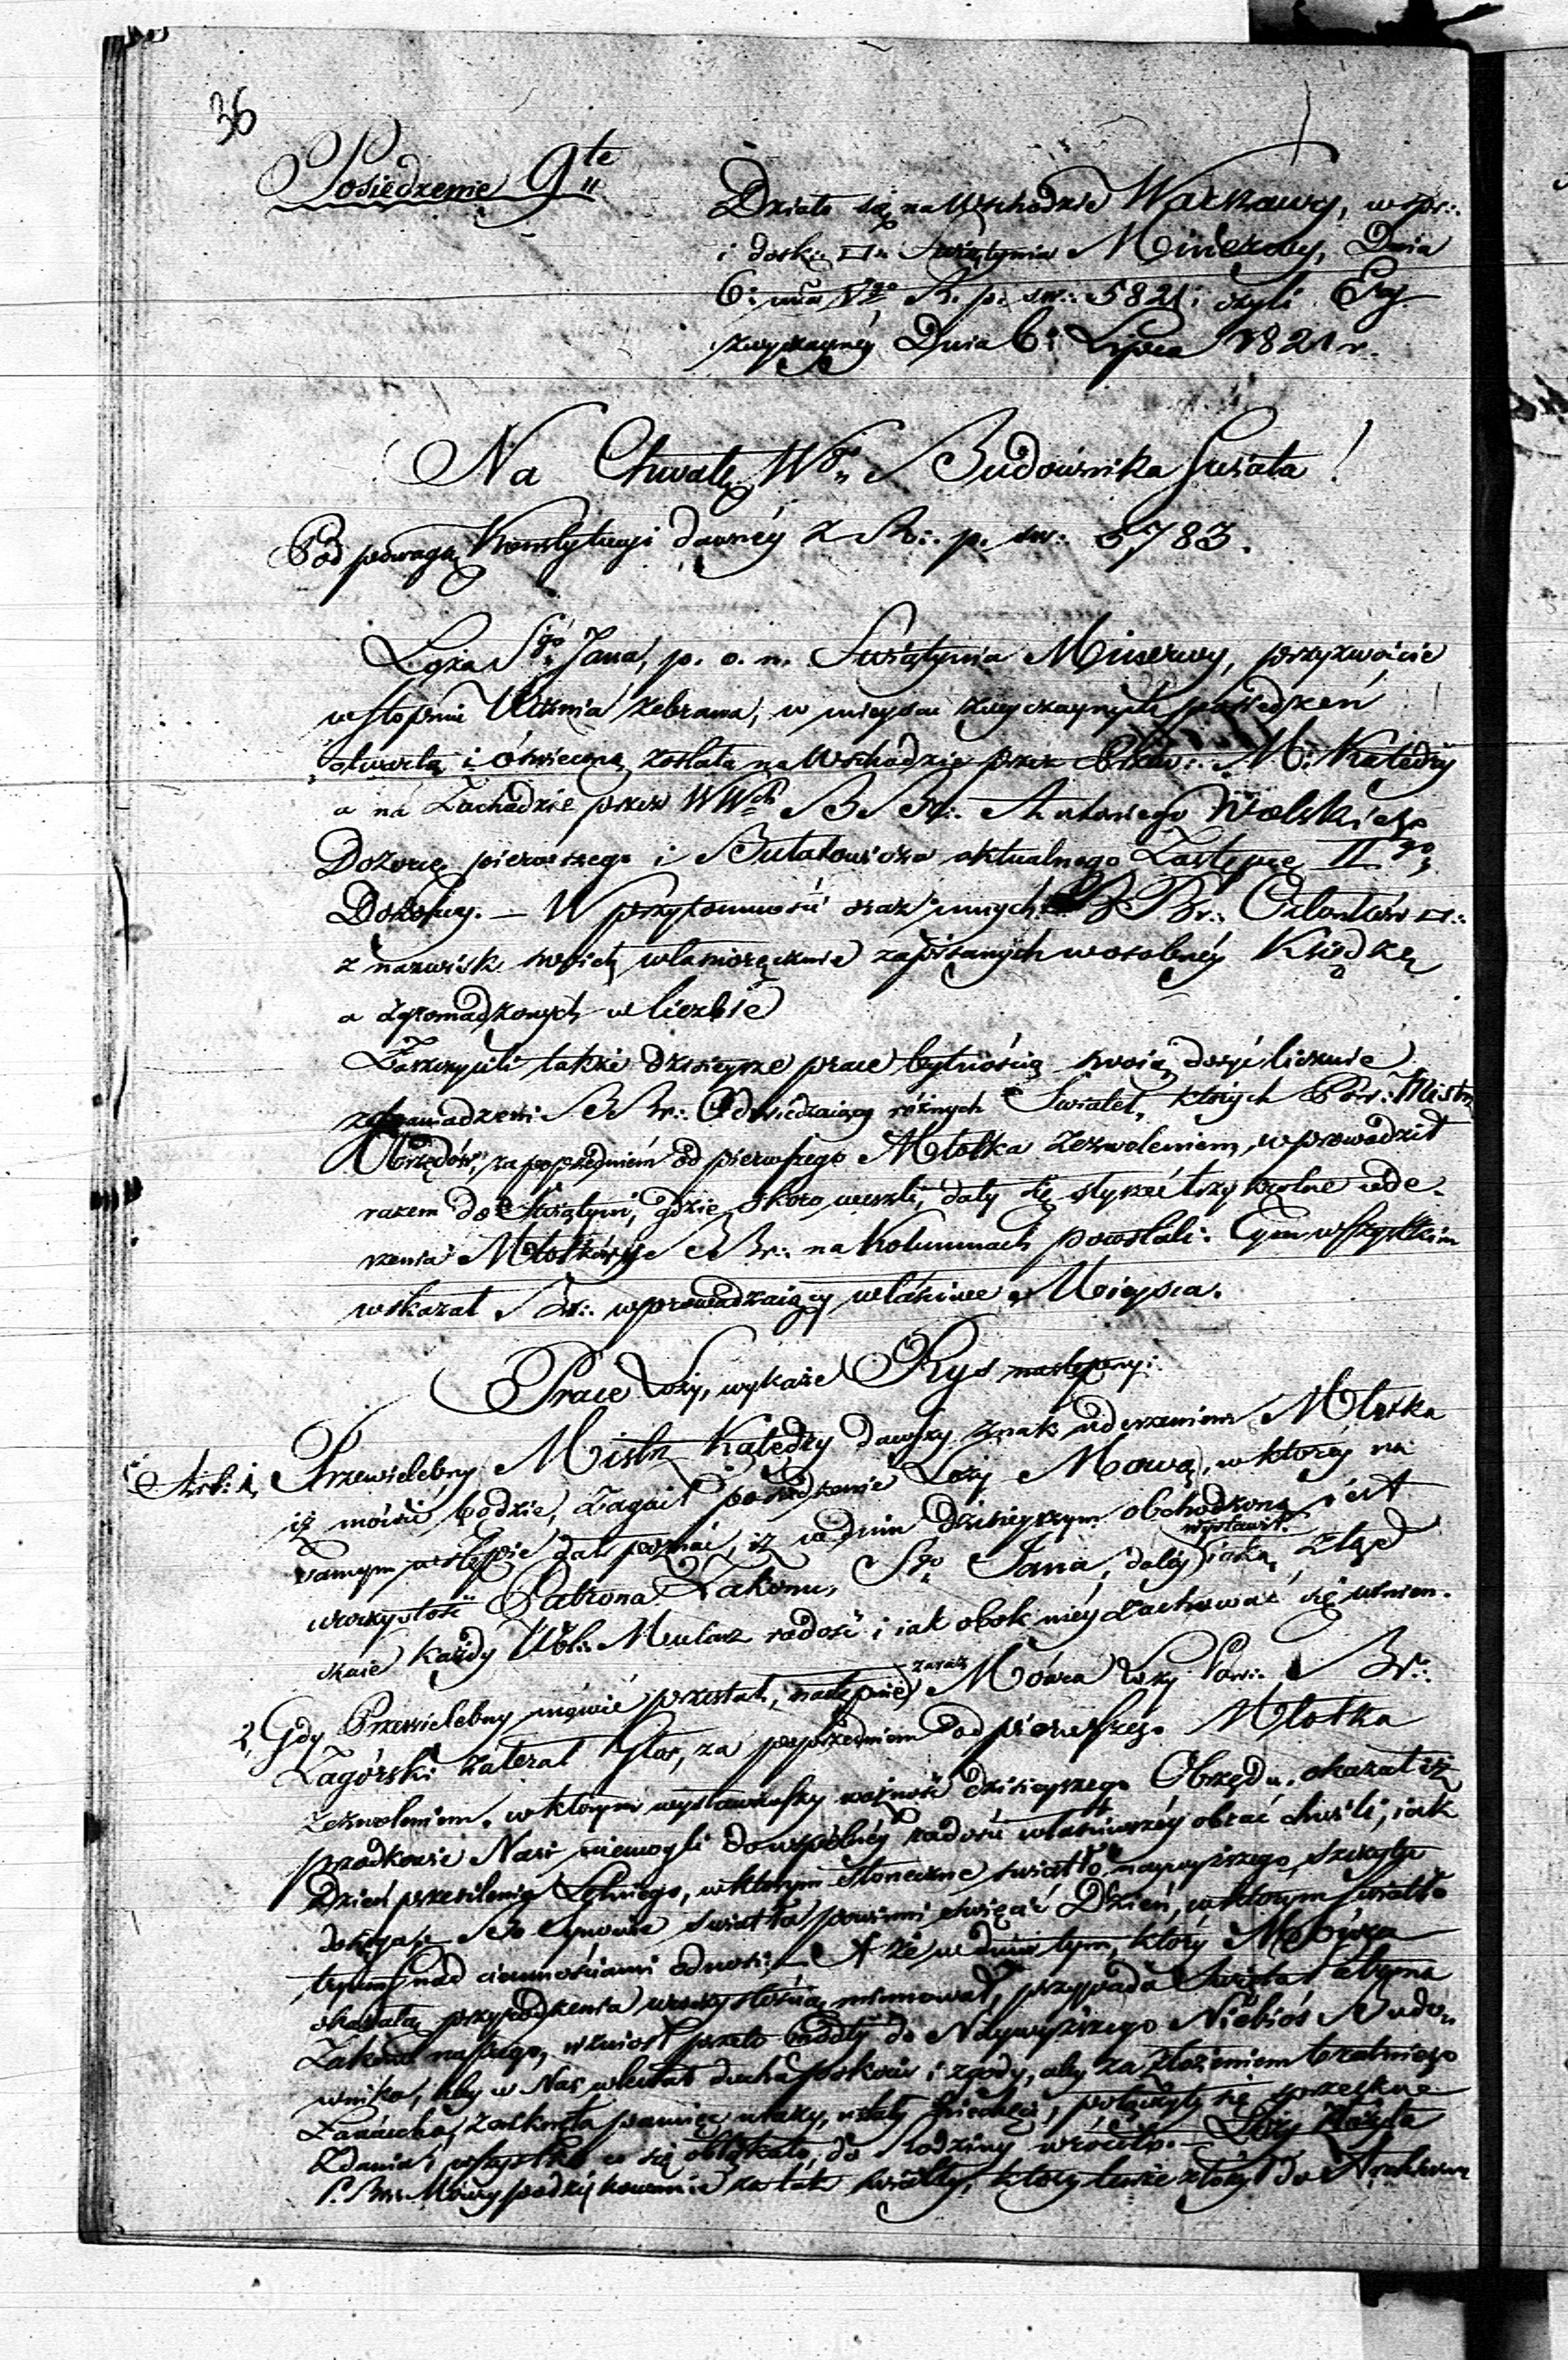 36
Posiedzenie 9te
Działo się na Wschodzie Warszawy, w spr:.
i dosk: □ Świątynia Minerwy, Dnia
6: mca Vgo R. p. sw: 5821: czyli Ery
zwyczaynéy Dnia 6: Lipca 1821 r.
Na Chwałę Wgo Budownika Świata!
Pod powagą Konstytucyi dawnéy z R:. p. sw: 5783.
Loża Sgo Jana, p. o. n. Świątynia Minerwy, przyzwoicie
w stopniu Ucznia zebrana, w mieyscu zwyczaynych posiedzeń
otwartą i óświeconą została na Wschodzie przez M: Katedry
a na Zachodzie przez WWch B Br:. Antoniego Wolskiego
Dozorcę pierwszego i Butatowicza aktualnego Zastępcę IIgo
Dozorcy. — W przytomności oraz innych B Br:. Członków □:.
z nazwisk swoich własnoręcznie zapisanych w osobnéy Książkę
a zgromadzonych w liczbie
Zaszczycili także dzisieysze prace bytnością swoią dosyć licznie
zgromadzeni B Br:. Odwiedzaiący różnych Świateł, których Prz: Mistrz
Obrzędów, za poprzedniém od pierwszego Młotka zezwoleniem, wprowadził
razem do Świątyni, gdzie, skoro weszli, dały się słyszeć trzy wolne ude-
rzenia Młotków, B Br:. na Kolumnach powstali. Czem wszystkim
wskazał Br:. wprowadzaiący właściwe Mieysca.
Prace Loży, wykaże Rys następny:
Art: 1, Przewielebny Mistrz Katedry dawszy znak uderzeniem Młotka
iż mówić będzie, zagaił posiedzenie Loży Mową, w któréy na
samym wstępie dał poznać, iż w dniu dzisieyszym obchodzoną iest
uroczystość Patrona Zakonu, Sgo Jana, daléy wystawił iaką ztąd
każdy Wol: Mularz radość i iak obok niéy zachować się winien.
2, Gdy Przewielebny mówić przestał, następnie zaraz Mówca Loży Prz:. Br:.
Zagórski zabrał głos, za poprzedniem od pierwszego Młotka
zezwoleniem, w którym wystawiwszy ważność dzisieyszego Obrzędu, okazał iż
przodkowie Nasi niemogli do wspólnéy radości właściwszéy obrać chwili, iak
Dzień przesilenia Letniego, w którym słoneczne światło naywyższego szczytu
dosięga, — Bo Synowie światła powinni święcić Dzień, w którym światło
tryumf nad ciemnościami odnosi; — A że w dniu tym, który Mówca
okazałą przyrodzenia uroczystością mianował, przypada Święto Patrona
Zakonu naszego, wzniósł przeto modły do Naywyższego Niebios Budo-
wnika, aby w Nas wlewał ducha pokoiu i zgody, aby za złożeniem bratniego
Łańcucha, zniknęła pamięć urazy, ustały niechęci, połączyły się sprzeczne
zdania i wszystko co się obłąkało, do Rodziny wróciło. — Loży złożyła
P. Br:. Mówcy podziękowanie za tak światły, który tenże złożył do Archiwum